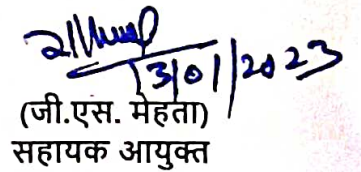 13/01/2023
(जी.एस. मेहता)
सहायक आयुक्त